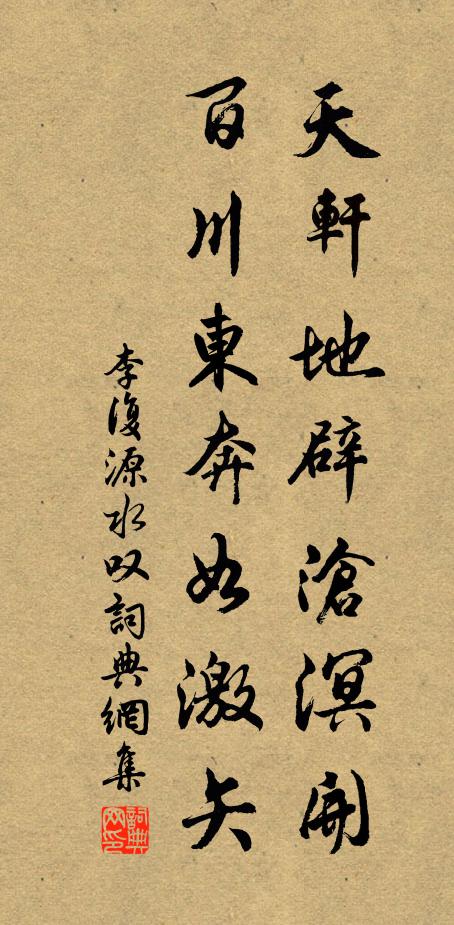 天軒地辟滄溟開
百川東奔如激矢
李復源水叹詞典網集
詞典网印